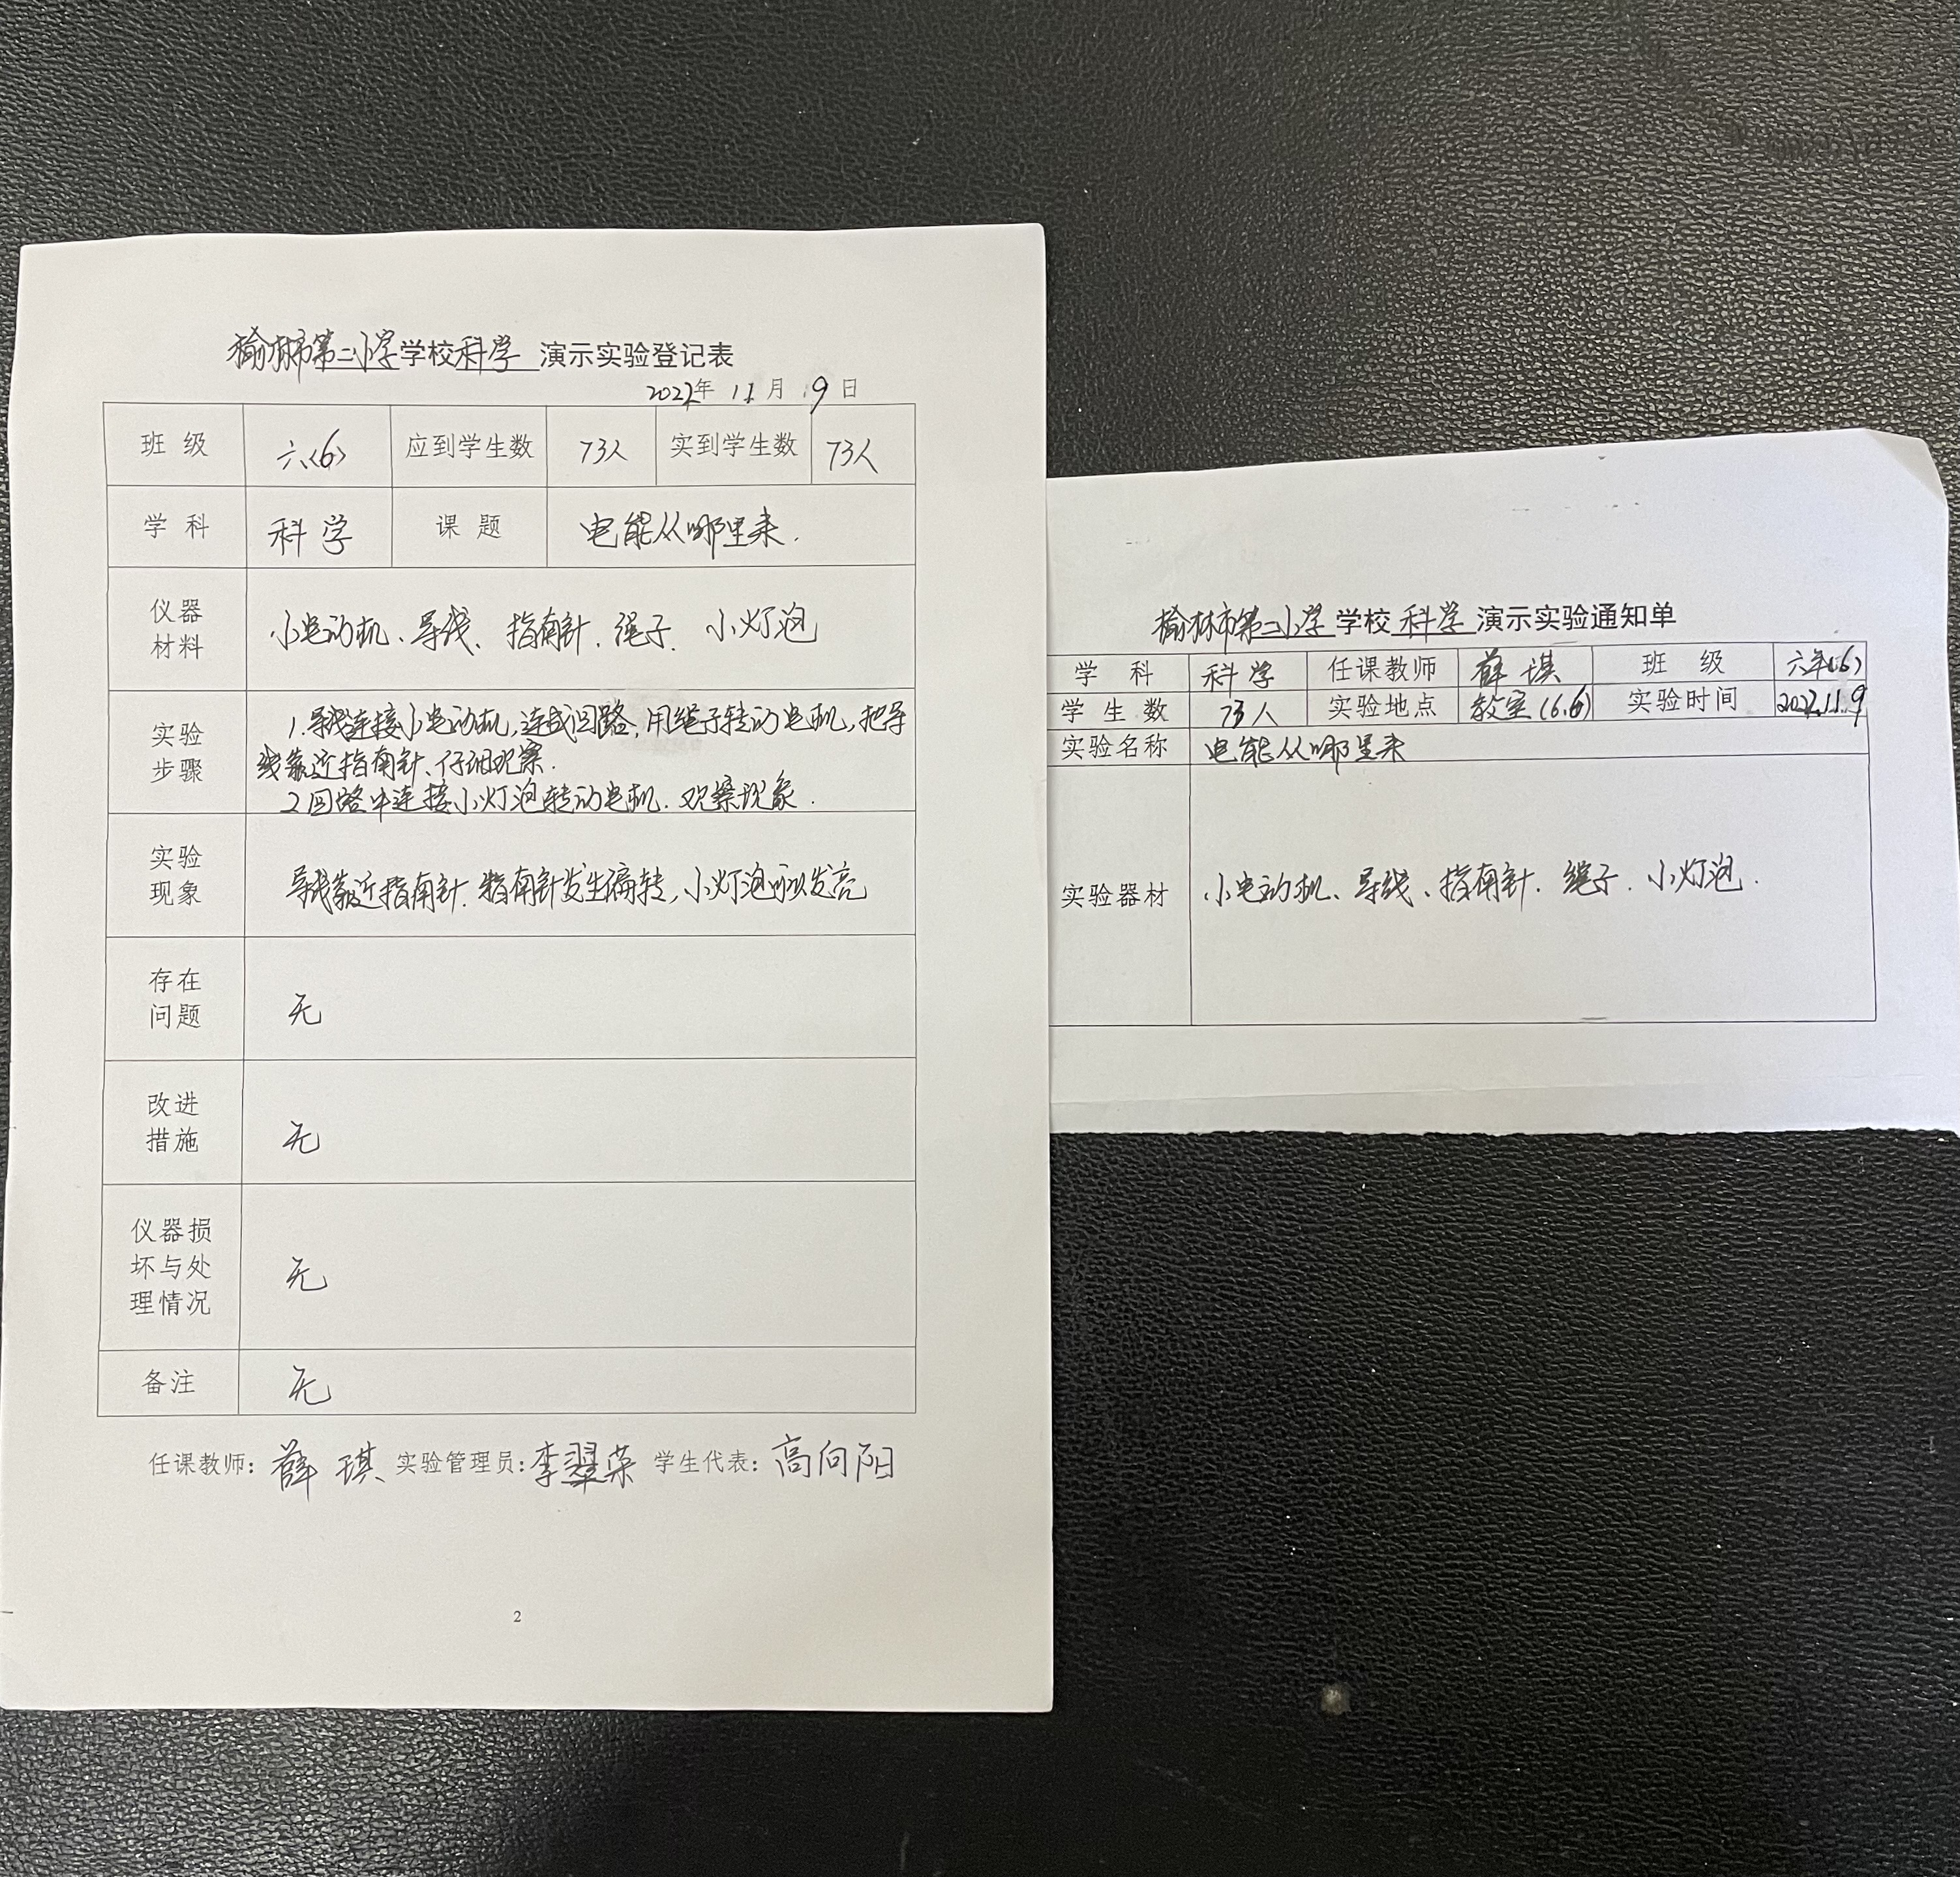 榆林市第二小学学校科学 演示实验登记表
2022年 11 月 9 日
班 级 六(6) 应到学生数 73人 实到学生数 73人
学 科 科学 课 题 电能从哪里来.
仪器
材料
小电动机、导线、指南针.绳子.小灯泡
实验
步骤
1.导线连接小电动机,连成回路,用绳子转动电机,把导
线靠近指南针、仔细观察.
2.回路中连接小灯泡转动电机.观察现象.
实验
现象
导线靠近指南针.指南针发生偏转,小灯泡可以发亮
存在
问题
无
改进
措施
无
仪器损
坏与处
理情况
无
备注 无
任课教师:薛琪 实验管理员:李翠荣 学生代表:高向阳
2
榆林市第二小学学校 科学 演示实验通知单
学 科 科学 任课教师 薛琪 班 级 六年(6)
学生数 73人 实验地点 教室(6.6) 实验时间 2022.11.9
实验名称 电能从哪里来
实验器材 小电动机、导线、指南针.绳子.小灯泡.